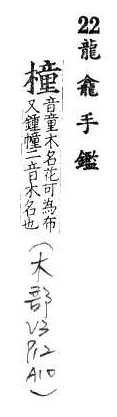 22龍龕手鑑
橦音童木名花可為布
又鍾幢二音木名也
(木部V3P12A10)